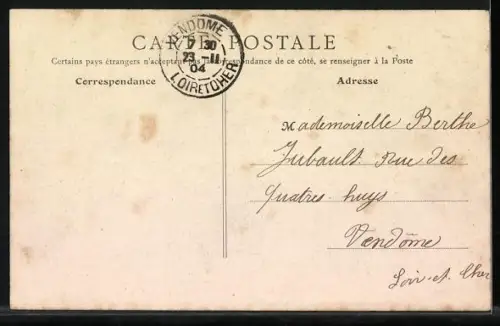 CARTE POSTALE
Certains pays étrangers n'acceptent pas la correspondance de ce côté, se renseigner à la Poste
Correspondance
Adresse
VENDOME
7 30
23 -11
04
LOIR ET CHER
Mademoiselle Berthe
Jubault Rue des
quatres huys
Vendôme
Loir-et-Cher